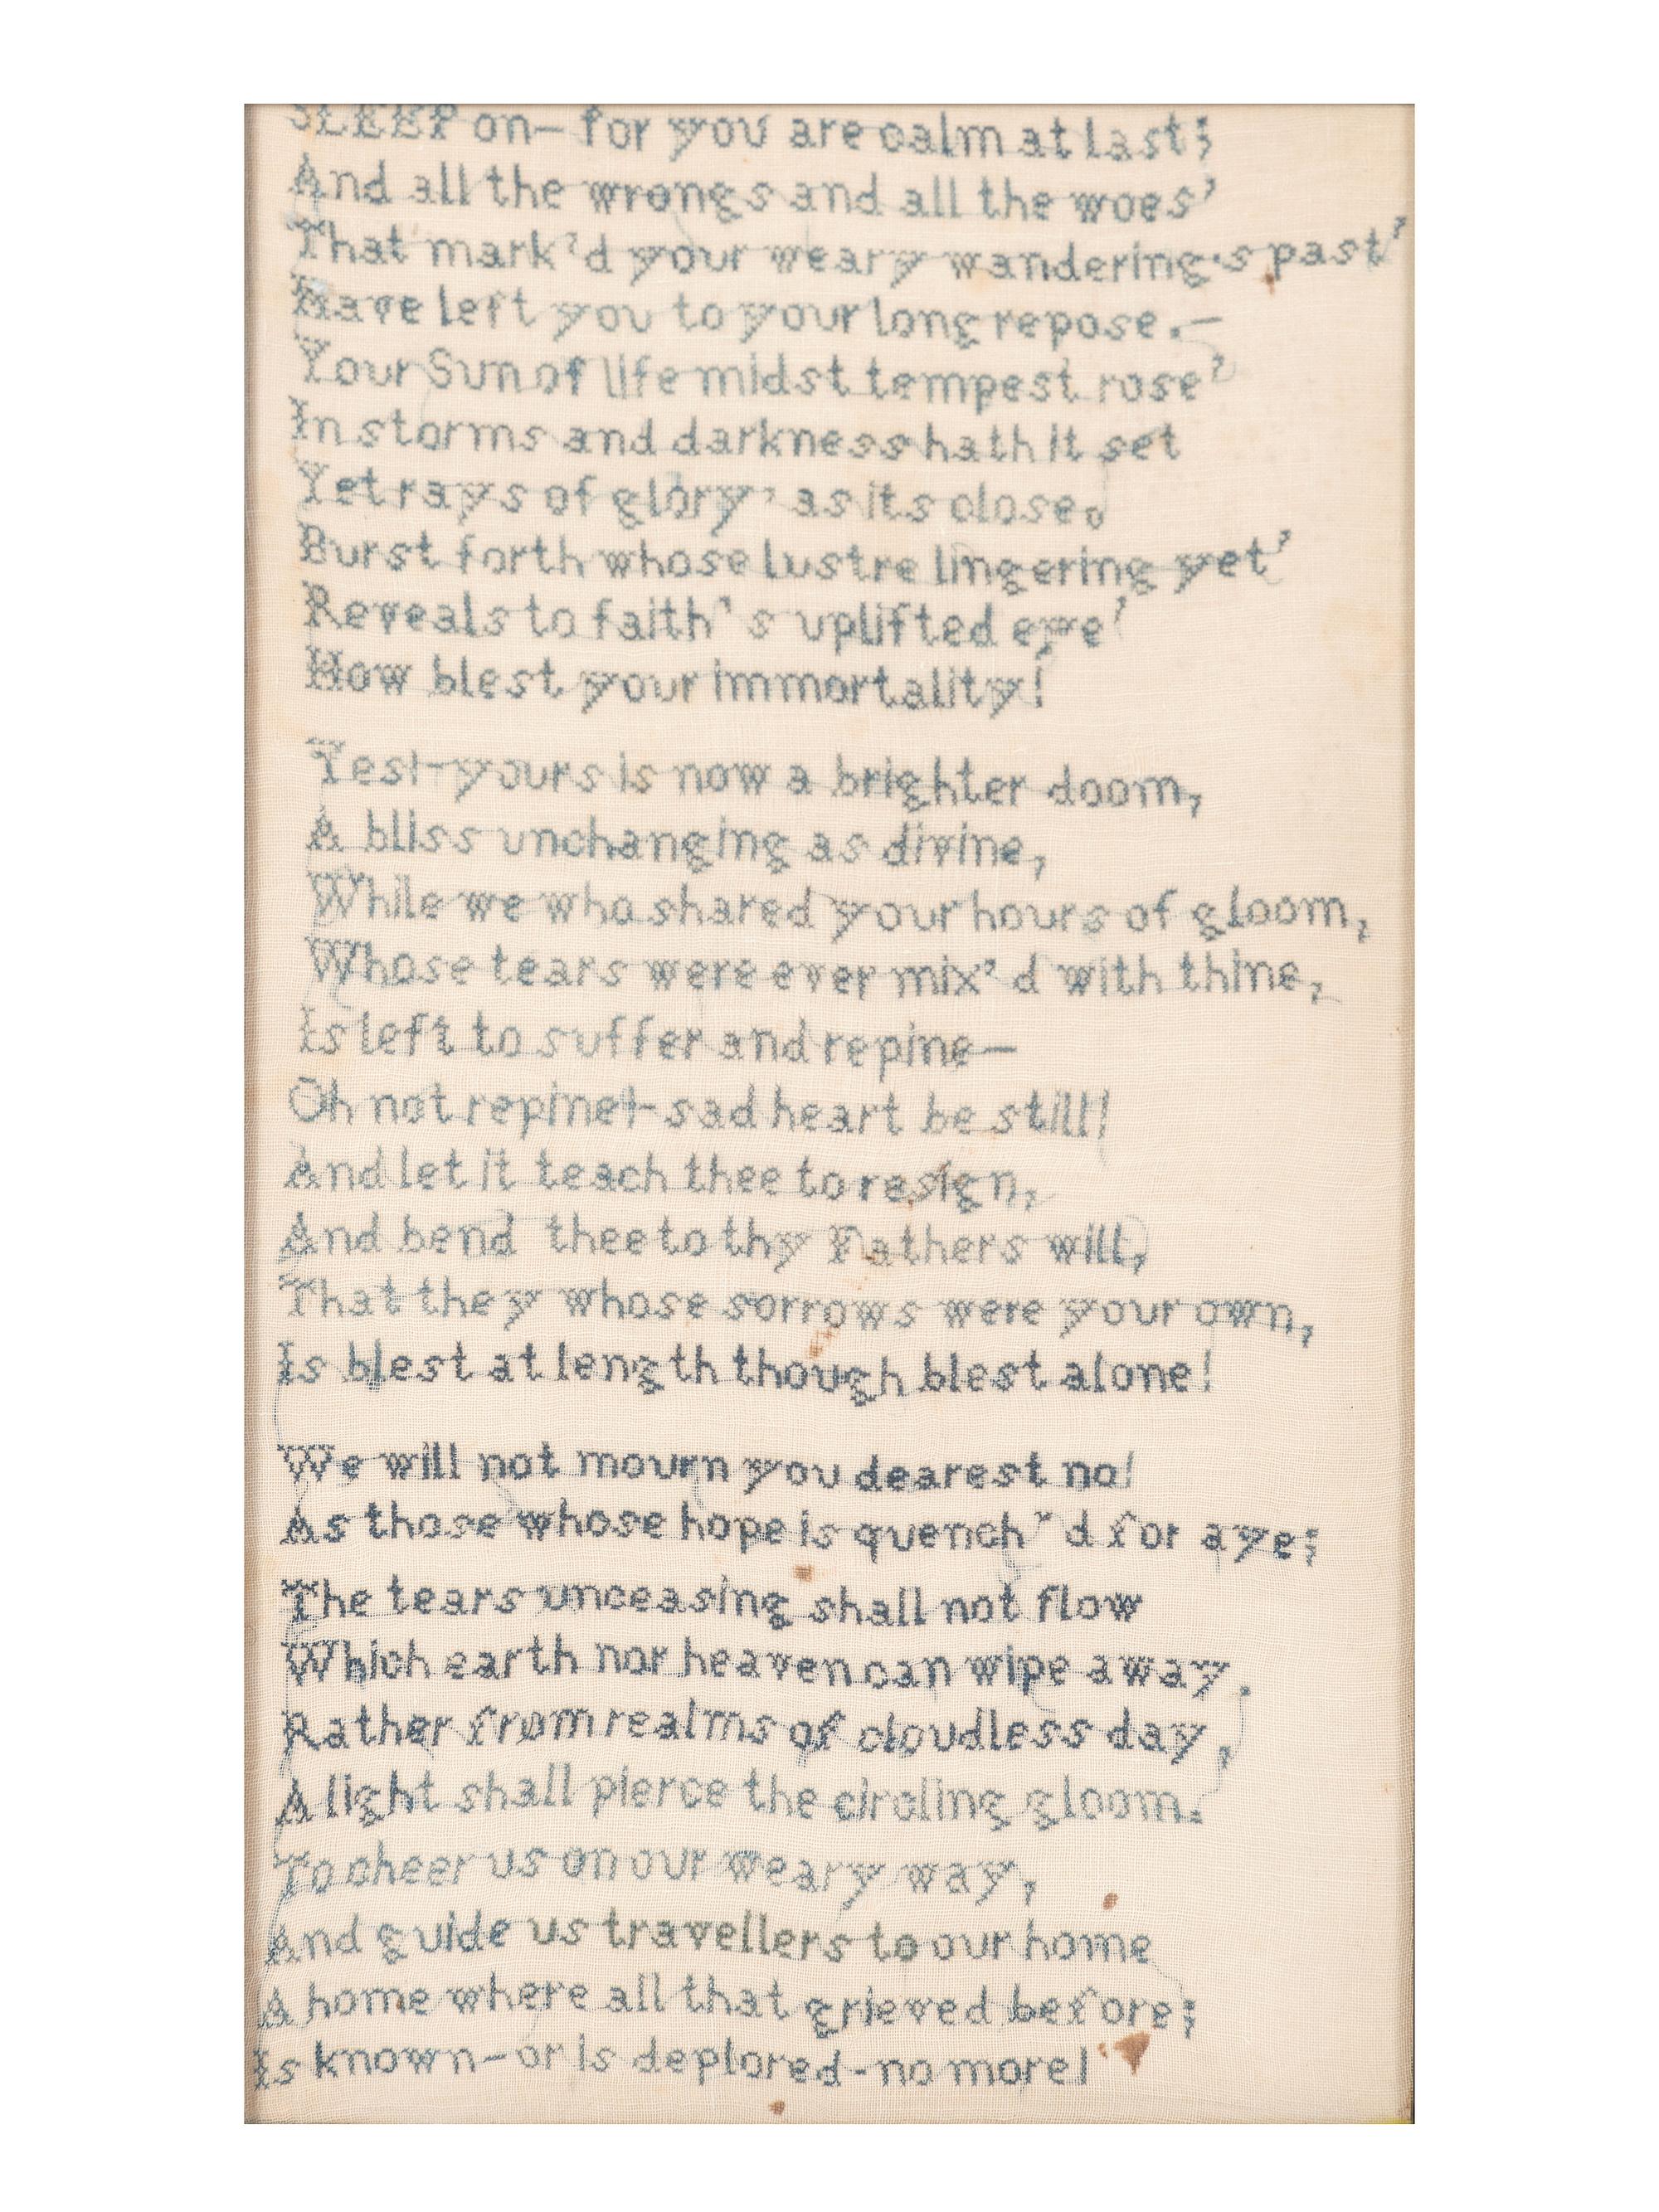 SLEEP on— for you are calm at last;
And all the wrongs and all the woes'
That mark'd your weary wandering's past'
Have left you to your long repose.—
Your Sun of life midst tempest rose'
In storms and darkness hath it set
Yet rays of glory' as its close,
Burst forth whose lustre lingering yet'
Reveals to faith's uplifted eye'
How blest your immortality!
Yes!-yours is now a brighter doom,
A bliss unchanging as divine,
While we who shared your hours of gloom,
Whose tears were ever mix'd with thine,
Is left to suffer and repine—
Oh not repine!-sad heart be still!
And let it teach thee to resign,
And bend thee to thy Fathers will,
That they whose sorrows were your own,
Is blest at length though blest alone!
We will not mourn you dearest no!
As those whose hope is quench'd for aye;
The tears unceasing shall not flow
Which earth nor heaven can wipe away.
Rather from realms of cloudless day,
A light shall pierce the circling gloom.
To cheer us on our weary way,
And guide us travellers to our home
A home where all that grieved before;
Is known—or is deplored-no more!